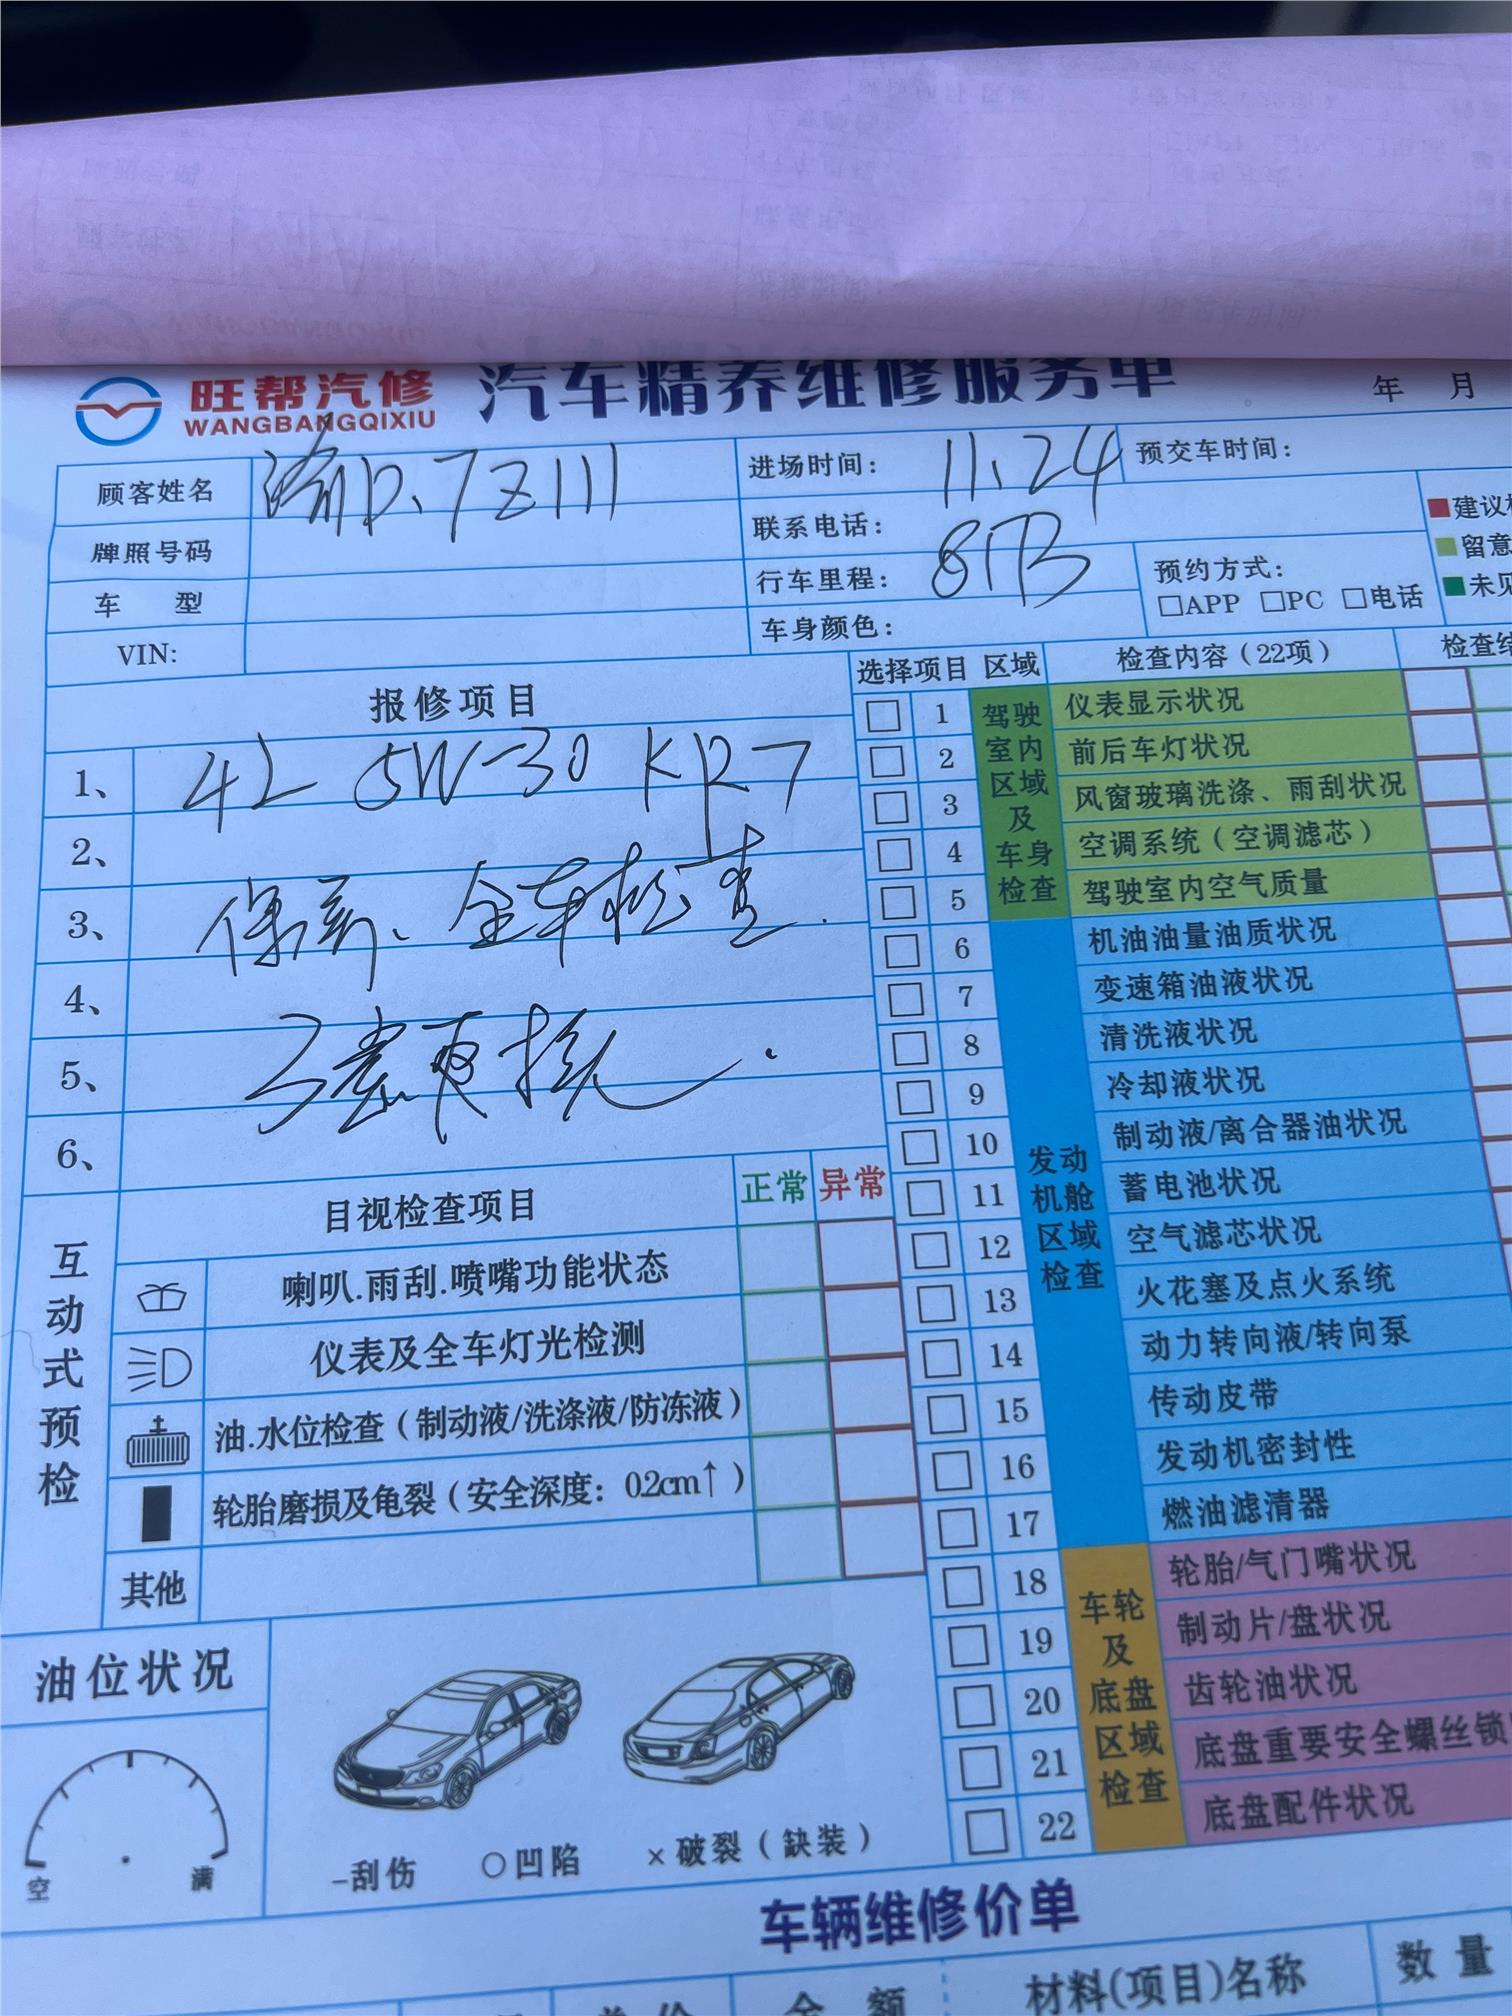 旺帮汽修
WANGBANGQIXIU
汽车精养维修服务单
年 月
顾客姓名 渝D.7Z111
进场时间： 11.24
预交车时间：
牌照号码
联系电话：
行车里程： 81
预约方式：
□APP □PC □电话
车 型
车身颜色：
VIN:
建议
留意
未见
报修项目
1、 4L 5W-30 KR7
2、
3、 保养、全车检查.
4、
5、 3滤更换.
6、
选择项目 区域 检查内容（22项） 检查结
驾驶室内区域及车身检查
1 仪表显示状况
2 前后车灯状况
3 风窗玻璃洗涤、雨刮状况
4 空调系统（空调滤芯）
5 驾驶室内空气质量
发动机舱区域检查
6 机油油量油质状况
7 变速箱油液状况
8 清洗液状况
9 冷却液状况
10 制动液/离合器油状况
11 蓄电池状况
12 空气滤芯状况
13 火花塞及点火系统
14 动力转向液/转向泵
15 传动皮带
16 发动机密封性
17 燃油滤清器
车轮及底盘区域检查
18 轮胎/气门嘴状况
19 制动片/盘状况
20 齿轮油状况
21 底盘重要安全螺丝锁
22 底盘配件状况
互动式预检
目视检查项目 正常 异常
喇叭.雨刮.喷嘴功能状态
仪表及全车灯光检测
油.水位检查（制动液/洗涤液/防冻液）
轮胎磨损及龟裂（安全深度：0.2cm↑）
其他
油位状况
空 满
-刮伤 ○凹陷 ×破裂（缺装）
车辆维修价单
单价 金额 材料(项目)名称 数量